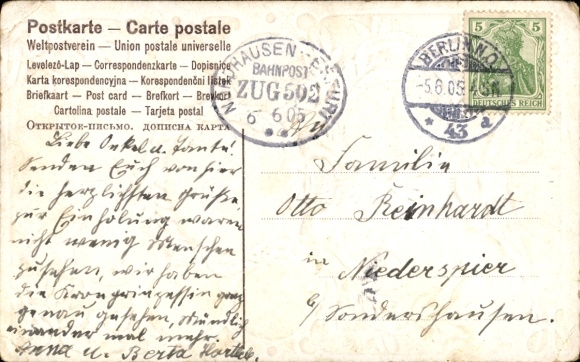 Postkarte — Carte postale
Weltpostverein — Union postale universelle
Levelező-Lap — Correspondenzkarte — Dopisnice
Karta korespondencyjna — Korespondenční lístek
Briefkaart — Post card — Brefkort — Brevkort
Cartolina postale — Tarjeta postal
ОТКРЫТОЕ-ПИСЬМО. ДОПИСНА КАРТА
NORDHAUSEN - ERFURT
BAHNPOST
ZUG 502
6 6 05
BERLIN N.O.
-5.6.05.
* 43 a
5 5
DEUTSCHES REICH
Liebe Onkel u. Tante!
Senden Euch von hier
die herzlichsten Grüße,
zur Einholung waren
nicht wenig Menschen
zusehen, wir haben
die Kronprinzessin ganz
genau gesehen, Mündlich
einander mal mehr.
Anna u. Berta
Familie
Otto Reinhardt
in
Niederspier
b/ Sondershausen.